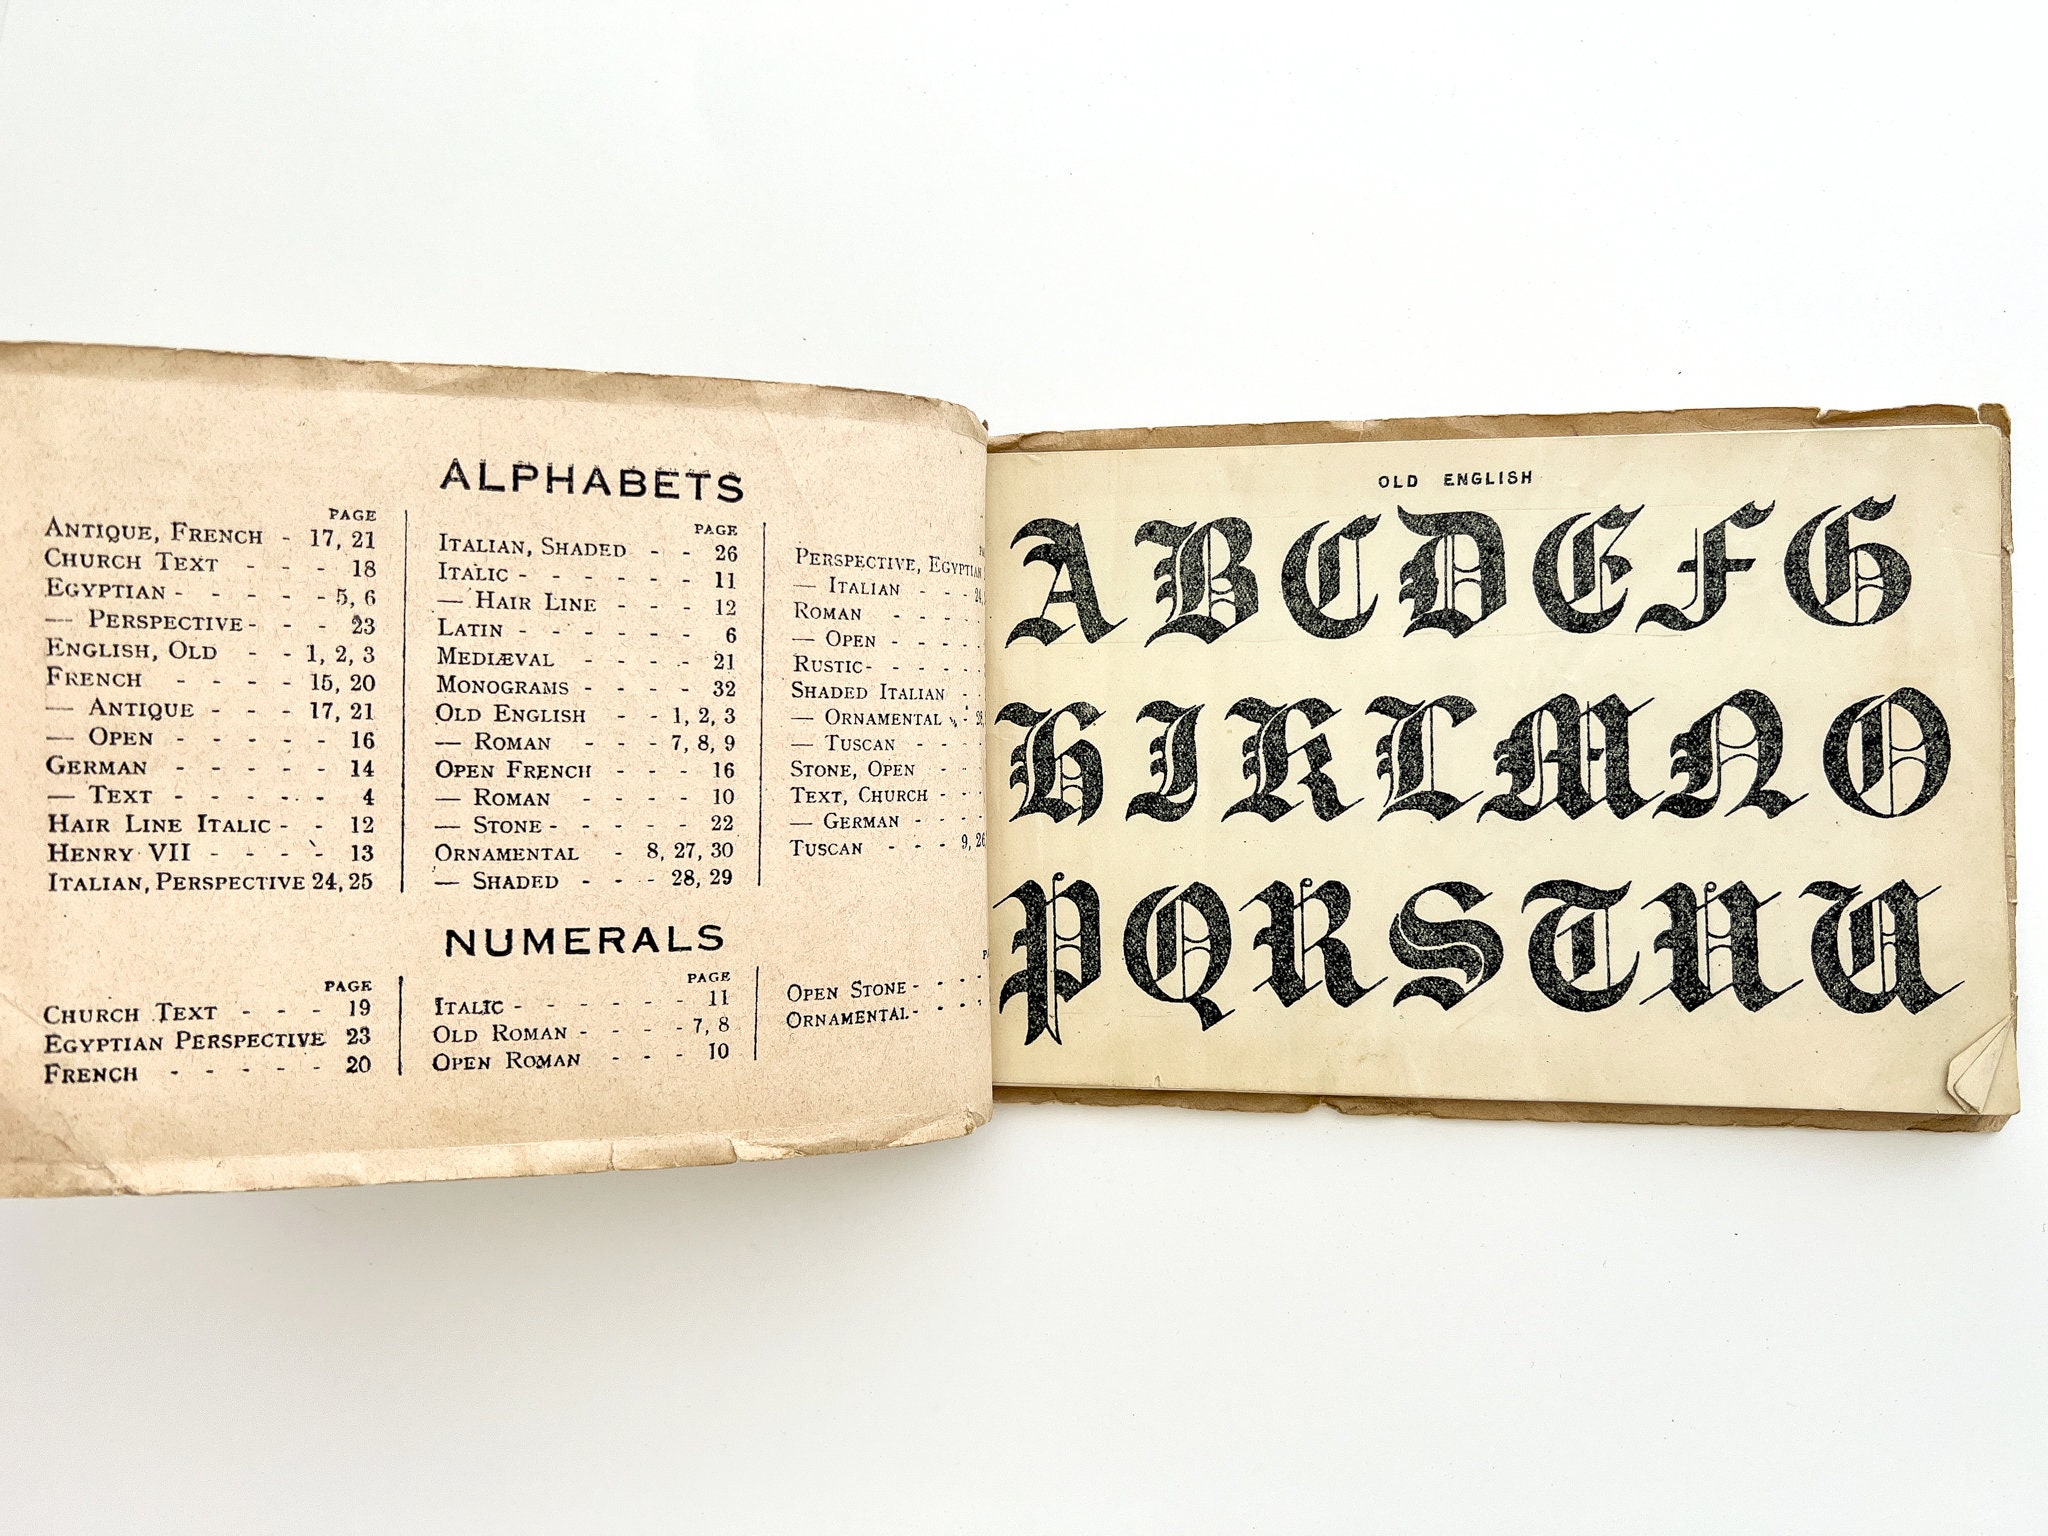 ALPHABETS
PAGE
ANTIQUE, FRENCH - 17, 21
CHURCH TEXT - - - 18
EGYPTIAN - - - - - 5, 6
— PERSPECTIVE - - - 23
ENGLISH, OLD - - 1, 2, 3
FRENCH - - - - 15, 20
— ANTIQUE - - - 17, 21
— OPEN - - - - - 16
GERMAN - - - - - 14
— TEXT - - - - - 4
HAIR LINE ITALIC - - 12
HENRY VII - - - - 13
ITALIAN, PERSPECTIVE 24, 25
PAGE
ITALIAN, SHADED - - 26
ITALIC - - - - - - 11
— HAIR LINE - - - 12
LATIN - - - - - - 6
MEDIÆVAL - - - - 21
MONOGRAMS - - - - 32
OLD ENGLISH - - 1, 2, 3
— ROMAN - - - 7, 8, 9
OPEN FRENCH - - - 16
— ROMAN - - - - 10
— STONE - - - - - 22
ORNAMENTAL - 8, 27, 30
— SHADED - - - 28, 29
PERSPECTIVE, EGYPTIAN
— ITALIAN - - -
ROMAN - - - -
— OPEN - - - -
RUSTIC - - - - -
SHADED ITALIAN - -
— ORNAMENTAL - -
— TUSCAN - - - -
STONE, OPEN - -
TEXT, CHURCH - - -
— GERMAN - - - -
TUSCAN - - - 9,
NUMERALS
PAGE
CHURCH TEXT - - - 19
EGYPTIAN PERSPECTIVE 23
FRENCH - - - - - 20
PAGE
ITALIC - - - - - - 11
OLD ROMAN - - - - 7, 8
OPEN ROMAN - - - 10
OPEN STONE - - -
ORNAMENTAL - - -
OLD ENGLISH
A B C D E F G
H I K L M N O
P Q R S T U U